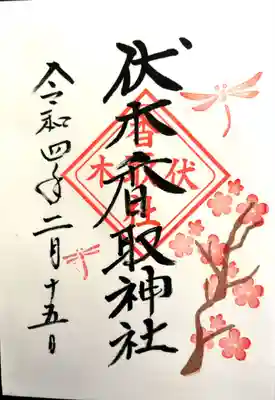 伏木香取神社
令和四年二月十五日
伏木
香取
社